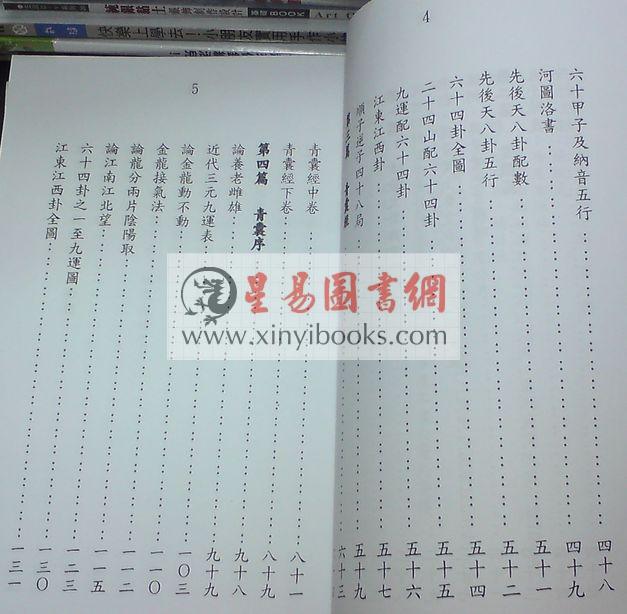 基礎BOOK
Art
快樂上學去！小朋友實用手作小
4
六十甲子及納音五行⋯⋯四十八
河圖洛書⋯⋯四十九
先後天八卦配數⋯⋯五十一
先後天八卦五行⋯⋯五十二
六十四卦全圖⋯⋯五十四
二十四山配六十四卦⋯⋯五十五
九運配六十四卦⋯⋯五十六
江東江西卦⋯⋯五十七
順子逆子四十八局⋯⋯五十九
第三篇 青囊經⋯⋯六十三
5
青囊經中卷⋯⋯八十一
青囊經下卷⋯⋯八十九
第四篇 青囊序⋯⋯九十八
論養老雌雄⋯⋯九十九
近代三元九運表⋯⋯一〇三
論金龍動不動⋯⋯一一〇
金龍接氣法⋯⋯一一二
論龍分兩片陰陽取⋯⋯一一五
論江南江北望⋯⋯一二三
六十四卦之一至九運圖⋯⋯一三〇
江東江西卦全圖⋯⋯一三一
星易圖書網
www.xinyibooks.com